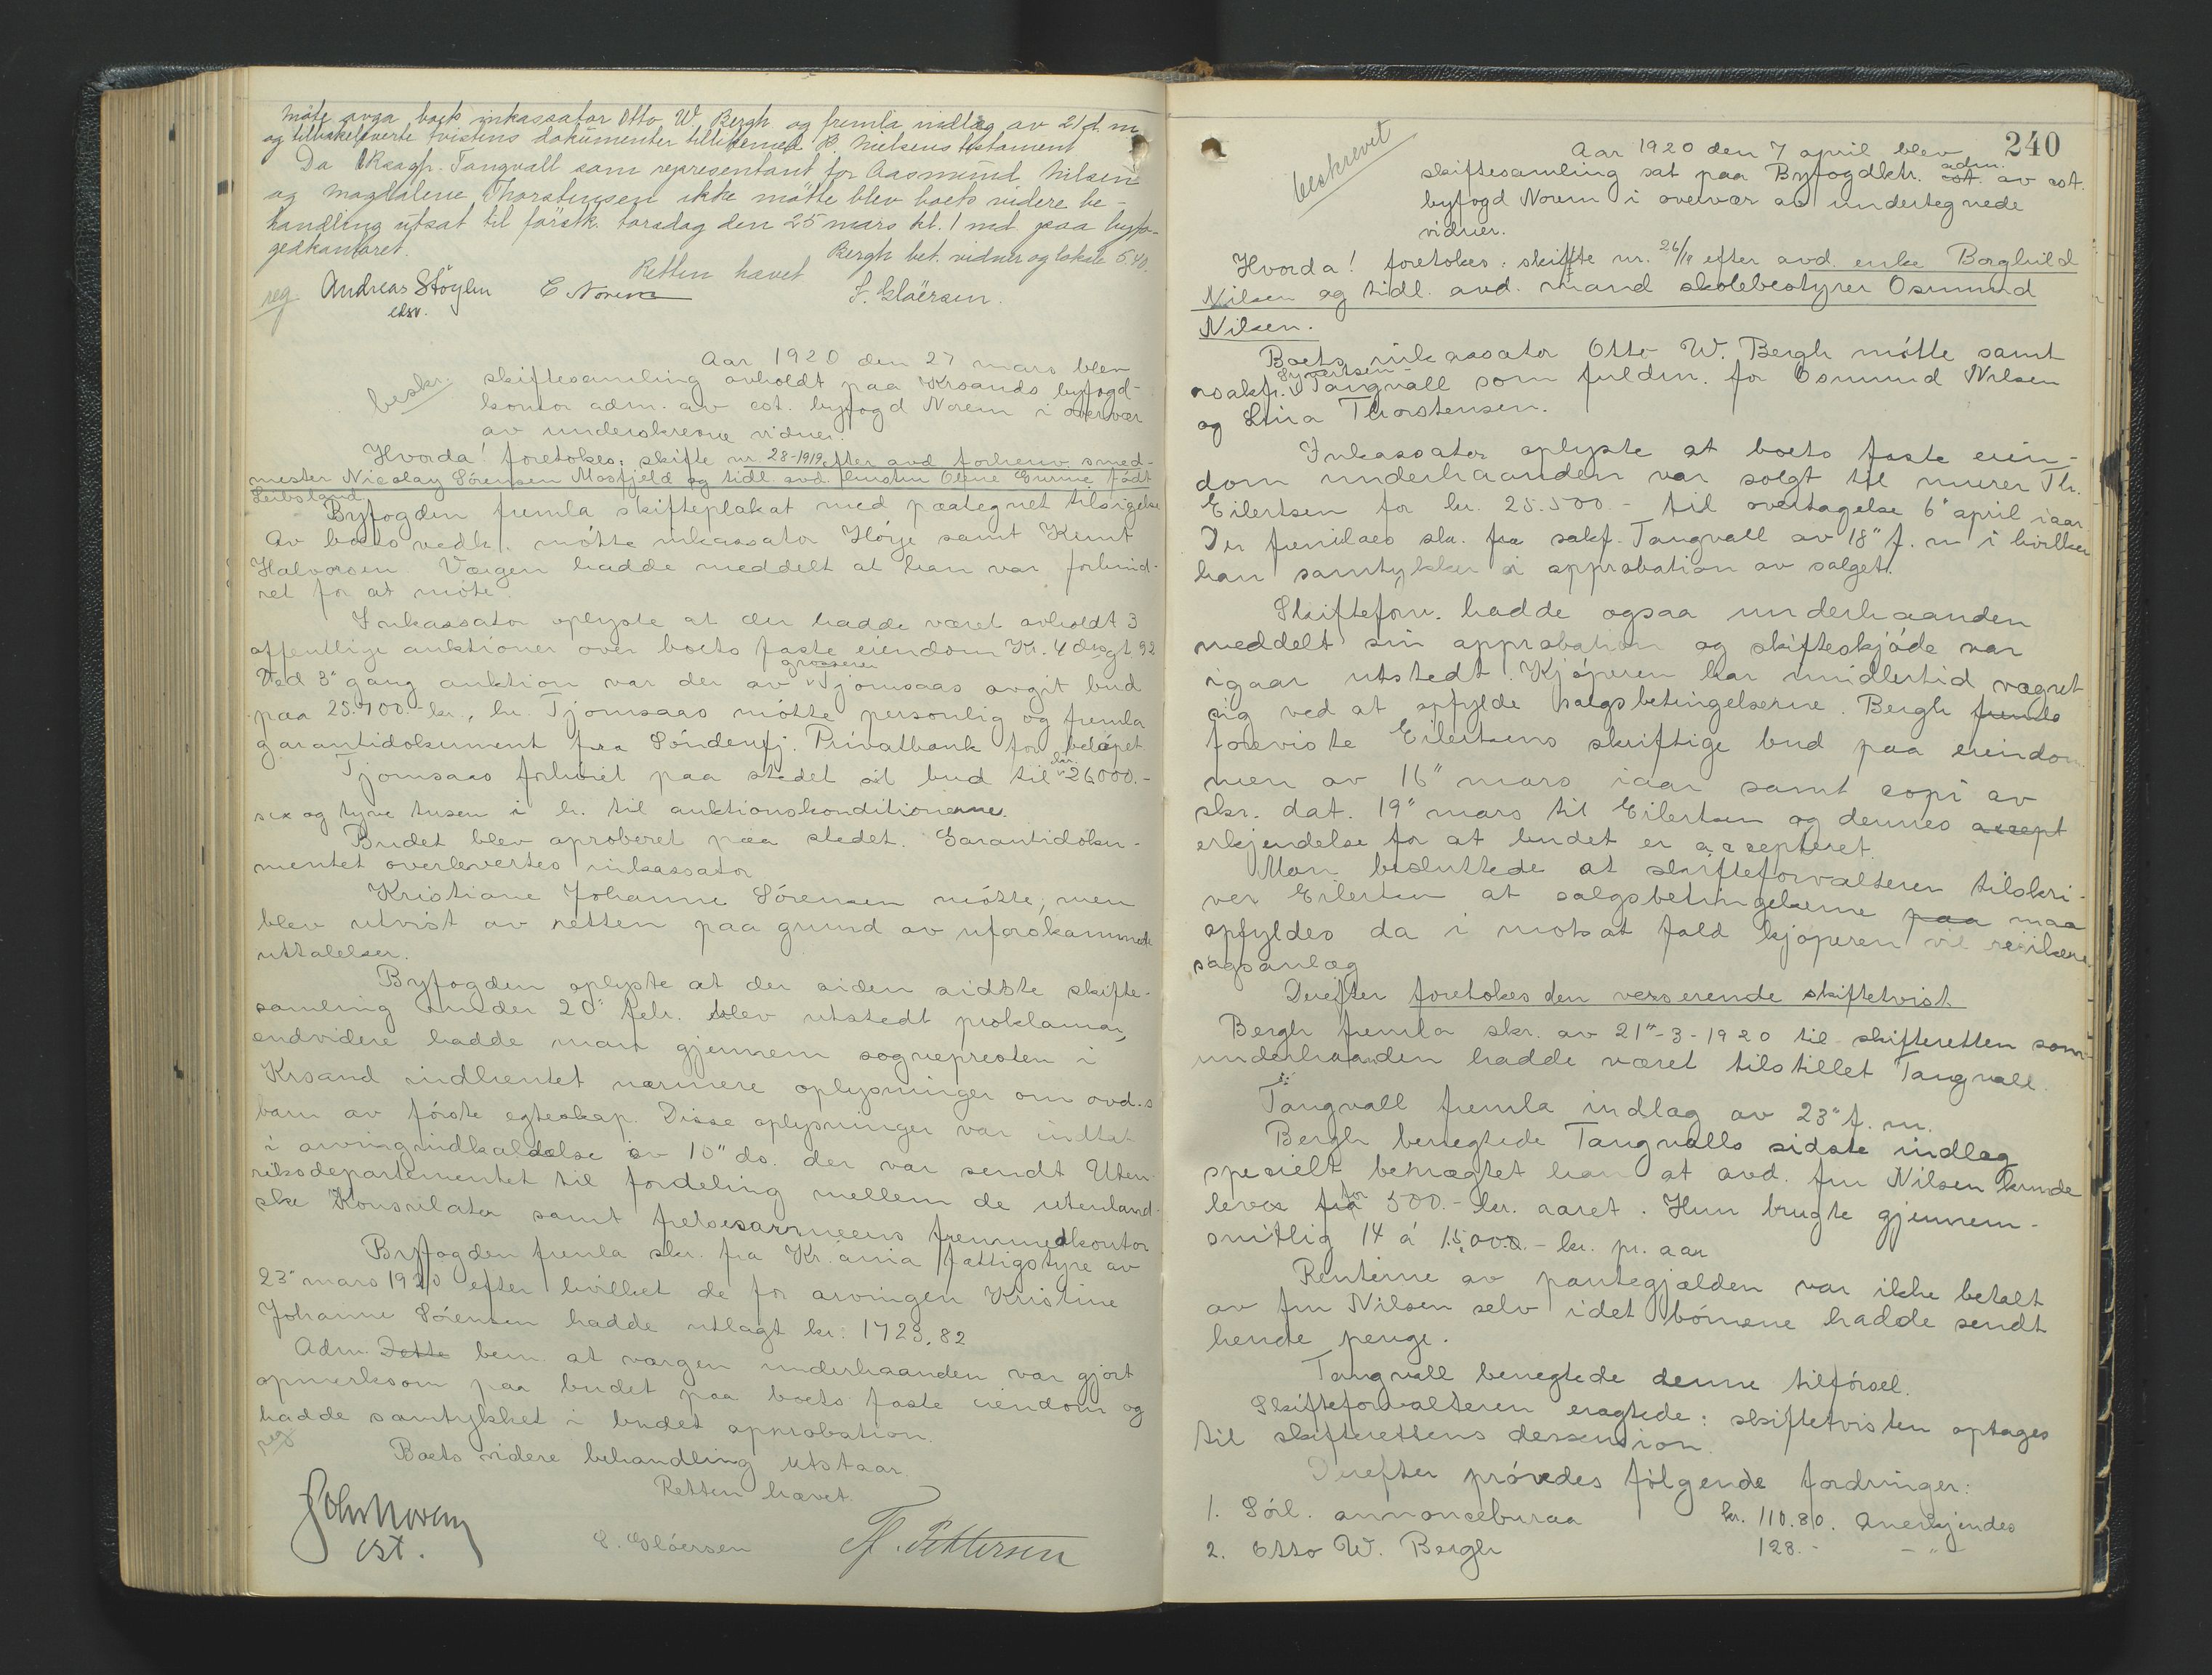 møte avga boets inkassator Otto W. Bergh og fremla indlæg av 21 d. m.
og tilbakeleverte tvistens dokumenter tillikemed B. Nielsens testament
Da Orsagf. Tangvall som representant for Aasmund Nilsen
og Magdalene Thorstensen ikke møtte blev boets videre be-
handling utsat til førstk. torsdag den 25 mars kl. 1 md paa byfo-
gedkontoret.
Bergh bet. vidner og lokale 5.40.
Retten hævet
reg Andreas Støylen E Norem S. Gloërsen.
edsv.
Aar 1920 den 27 mars blev
beskr. skiftesamling avholdt paa Krsands byfogd-
kontor adm. av cst. byfogd Norem i overvær
av underskrevne vidner.
Hvorda! foretokes: skifte nr. 28-1919 efter avd forhenv. smed-
mester Nicolay Sørensen Mosfjeld og tidl. avd. hustru Olene Gurine født
Leibsland
Byfogden fremla skifteplakat med paategnet tilsigelse
Av boets vedk. møtte inkassator Høije samt Kemt
Halvorsen. Værgen hadde meddelt at han var forhind-
ret for at møte.
Inkassator oplyste at der hadde været avholdt 3
offentlige auktioner over boets faste eiendom Kr. 4 desgt 92
grosserer
Ved 3" gang auktion var der av Tjomsaas avgit bud
paa 25.700.- kr., hr. Tjomsaas møtte personlig og fremla
garantidokument fra Søndenfj. Privatbank for beløpet.
Tjomsaas forhøiet paa stedet sit bud til kr. 26000.-
sex og tyve tusen i h. til auktionskonditionerne.
Budet blev aproberet paa stedet. Garantidoku-
mentet overlevertes inkassator
Kristiane Johanne Sørensen møtte, men
blev utvist av retten paa grund av uforskammede
uttalelser.
Byfogden oplyste at der siden sidste skifte-
samling under 20" febr. blev utstedt proklama,
endvidere hadde man gjennem sognepresten i
Krsand indhentet nærmere oplysninger om avd.s
barn av første egteskap. Disse oplysninger var indtat
i arvingindkaldelse av 10" ds. der var sendt Uten-
riksdepartementet til fordeling mellem de utenland-
ske Konsulater samt frelsesarmeens fremmedkontor
Byfogden fremla skr. fra Kr.ania fattigstyre av
23" mars 1920 efter hvilket de for arvingen Kristine
Johanne Sørensen hadde utlagt kr: 1723,82
Adm. Dette bem. at værgen underhaanden var gjort
opmerksom paa budet paa boets faste eiendom og
hadde samtykket i budets approbation.
reg Boets videre behandling utstaar.
Retten hævet
John Norem
cst.
S. Gloërsen Th. Pettersen
240
Aar 1920 den 7 april blev
beskrevet adm.
skiftesamling sat paa Byfogdktr. cst. av cst.
byfogd Norem i overvær av undertegnede
vidner.
Hvorda! foretokes: skifte nr. 26/19 efter avd. enke Borghild
Nilsen og tidl. avd. mand skolebestyrer Osmund
Nilsen.
Boets inkassator Otto W. Bergh møtte samt
Syvertsen-
orsakf. Tangvall som fuldm. for Osmund Nilsen
og Lina Thorstensen.
Inkassator oplyste at boets faste eien-
dom underhaanden var solgt til murer Th.
Eilertsen for kr. 25.500.- til overtagelse 6" april iaar
Der fremlaes skr. fra sakf. Tangvall av 18" f. m i hvilken
han samtykker i approbation av salget.
Skifteforv. hadde ogsaa underhaanden
meddelt sin approbation og skifteskjøde var
igaar utstedt. Kjøperen har imidlertid vægret
sig ved at opfylde salgsbetingelserne. Bergh fremla
foreviste Eilertsens skriftige bud paa eiendom-
men av 16" mars iaar samt copi av
skr. dat. 19" mars til Eilertsen og dennes accept
erkjendelse for at budet er accepteret.
Man besluttede at skifteforvalteren tilskri-
ver Eilertsen at salgsbetingelserne paa maa
opfyldes da i motsat fald kjøperen vil risikere
sagsanlæg
Derefter foretokes den verserende skiftetvist
Bergh fremla skr. av 21"-3-1920 til skifteretten som
underhaanden hadde været tilstillet Tangvall.
Tangvall fremla indlæg av 23" f. m.
Bergh benegtede Tangvalls sidste indlæg
spesielt benægtet han at avd. fru Nilsen kunde
for
leve fra 500.- kr. aaret. Hun brugte gjennem-
snitlig 14 á 1500.- kr. pr. aar
Renterne av pantegjælden var ikke betalt
av fru Nilsen selv idet børnene hadde sendt
hende penge.
Tangvall benegtede denne tilførsel.
Skifteforvalteren eragtede: skiftetvisten optages
til skifterettens dessension.
Derefter prøvedes følgende fordringer:
1. Sørl. annoncebyraa kr. 110.80. Anerkjendes
2. Otto W. Bergh 128.- - " -